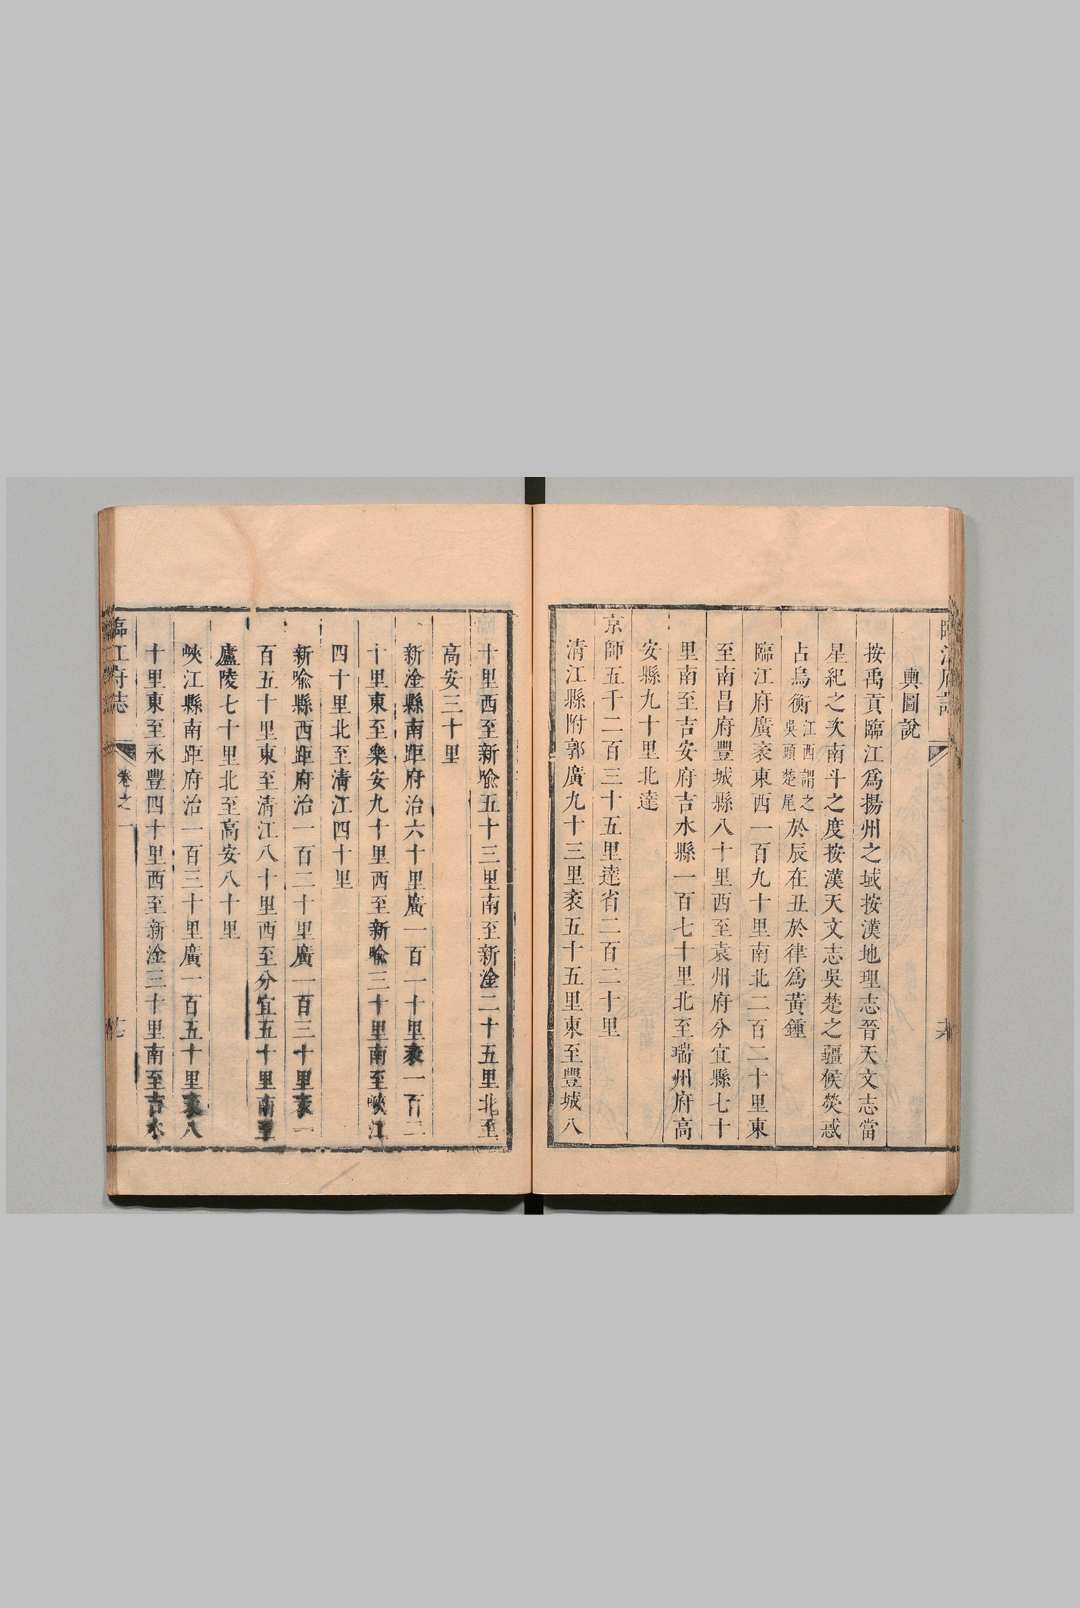 輿圖說
按禹貢臨江爲揚州之域按漢地理志晉天文志當
星紀之次南斗之度按漢天文志吳楚之疆候熒惑
占鳥衡江西謂之吳頭楚尾於辰在丑於律爲黃鍾
臨江府廣袤東西一百九十里南北二百二十里東
至南昌府豐城縣八十里西至袁州府分宜縣七十
里南至吉安府吉水縣一百七十里北至瑞州府高
安縣九十里北達
京師五千二百三十五里達省二百二十里
清江縣附郭廣九十三里袤五十五里東至豐城八
十里西至新喻五十三里南至新淦二十五里北至
高安三十里
新淦縣南距府治六十里廣一百一十里袤一百二
十里東至樂安九十里西至新喻三十里南至峽江
四十里北至清江四十里
新喻縣西距府治一百二十里廣一百三十里袤一
百五十里東至清江八十里西至分宜五十里南至
廬陵七十里北至高安八十里
峽江縣南距府治一百三十里廣一百五十里袤八
十里東至永豐四十里西至新淦三十里南至吉水
臨江府志
卷之一